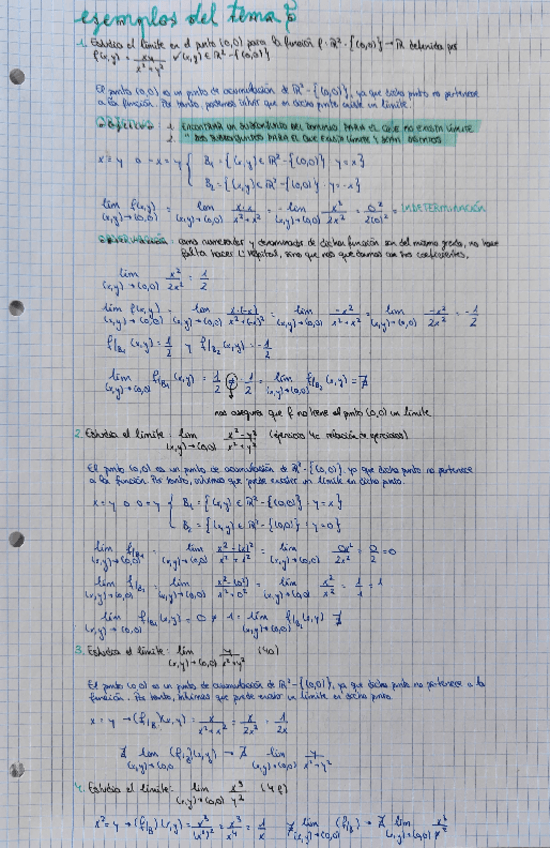 ejemplos del tema 5
1. Estudia el límite en el punto (0,0) para la función f: ℝ²-{(0,0)} → ℝ definida por
f(x,y) = xy / x²+y² ∀(x,y) ∈ ℝ²-{(0,0)}
El punto (0,0) es un punto de acumulación de ℝ²-{(0,0)}, ya que dicho punto no pertenece
a la función. Por tanto, podemos intuir que en dicho punto existe un límite.
OBJETIVO: 1. ENCONTRAR UN SUBCONJUNTO DEL DOMINIO PARA EL QUE NO EXISTA LÍMITE
2. " DOS SUBCONJUNTOS PARA EL QUE EXISTA LÍMITE Y SEAN DISTINTOS
x=y o -x=y { B₁ = {(x,y) ∈ ℝ²-{(0,0)} : y=x}
B₂ = {(x,y) ∈ ℝ²-{(0,0)} : y=-x}
lím (x,y)→(0,0) f(x,y) = lím (x,y)→(0,0) x·x / x²+x² = lím (x,y)→(0,0) x² / 2x² = 0² / 2(0)² = INDETERMINACIÓN
como numerador y denominador de dicha función son del mismo grado, no hace
falta hacer L'Hôpital, sino que nos quedamos con sus coeficientes.
lím (x,y)→(0,0) x² / 2x² = 1/2
lím (x,y)→(0,0) f(x,y) = lím (x,y)→(0,0) x·(-x) / x²+(-x)² = lím (x,y)→(0,0) -x² / x²+x² = lím (x,y)→(0,0) -x² / 2x² = -1/2
f|B₁ (x,y) = 1/2 y f|B₂ (x,y) = -1/2
lím (x,y)→(0,0) f|B₁ (x,y) = 1/2 ≠ -1/2 = lím (x,y)→(0,0) f|B₂ (x,y) = ∄
nos asegura que f no tiene el punto (0,0) un límite
2. Estudia el límite: lím (x,y)→(0,0) x²-y² / x²+y² (ejercicio 4c relación de ejercicios)
El punto (0,0) es un punto de acumulación de ℝ²-{(0,0)}, ya que dicho punto no pertenece
a la función. Por tanto, intuimos que puede existir un límite en dicho punto.
x=y o 0=y { B₁ = {(x,y) ∈ ℝ²-{(0,0)} : y=x}
B₂ = {(x,y) ∈ ℝ²-{(0,0)} : y=0}
lím (x,y)→(0,0) f|B₁ = lím (x,y)→(0,0) x²-(x)² / x²+x² = lím (x,y)→(0,0) 0x² / 2x² = 0/2 = 0
lím (x,y)→(0,0) f|B₂ = lím (x,y)→(0,0) x²-(0²) / x²+0² = lím (x,y)→(0,0) x² / x² = 1/1 = 1
lím (x,y)→(0,0) f|B₁ (x,y) = 0 ≠ 1 = lím (x,y)→(0,0) f|B₂ (x,y) ∄
3. Estudia el límite: lím (x,y)→(0,0) y / x²+y² (4o)
El punto (0,0) es un punto de acumulación de ℝ²-{(0,0)}, ya que dicho punto no pertenece a la
función. Por tanto, intuimos que puede existir un límite en dicho punto.
x=y → (f|B)(x,y) = x / x²+x² = x / 2x² = 1 / 2x
∄ lím (x,y)→(0,0) (f|B)(x,y) → ∄ lím (x,y)→(0,0) y / x²+y²
4. Estudia el límite: lím (x,y)→(0,0) x³ / y² (4p)
x²=y → (f|B)(x,y) = x³ / (x²)² = x³ / x⁴ = 1/x ∄ lím (x,y)→(0,0) (f|B) → ∄ lím (x,y)→(0,0)